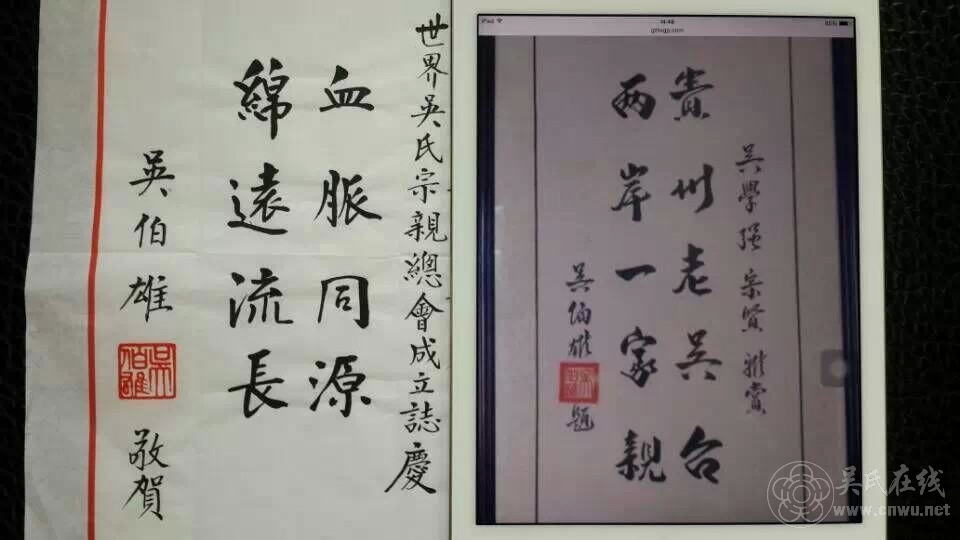 世界吳氏宗親總會成立誌慶
血脈同源
綿遠流長
吳伯雄
吳伯雄
敬賀
iPad
14:48
吳學强宗賢雅賞
貴州老吳台
两岸一家親
吳伯雄題
吴氏在线
www.cnwu.net